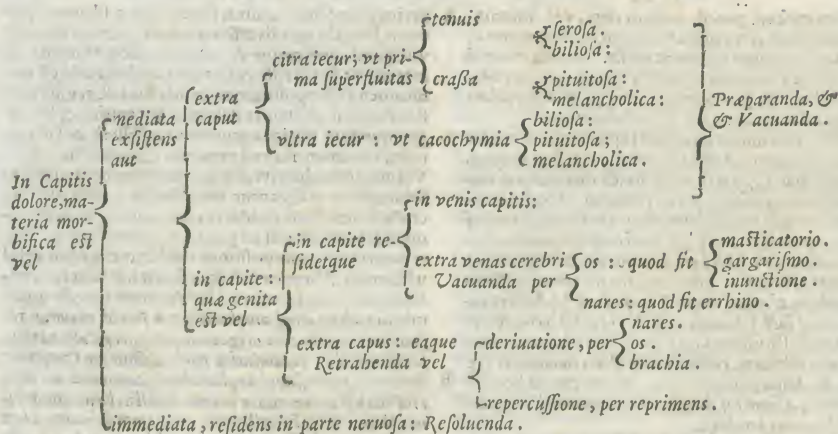 In Capitis
dolore, ma-
teria mor-
bifica est
vel
nediata
exsistens
aut
extra
caput
citra iecur; vt pri-
ma superfluitas
tenuis
serosa.
biliosa:
crassa
pituitosa:
melancholica:
vltra iecur : vt cacochymia
biliosa:
pituitosa;
melancholica.
Præparanda, &
& Vacuanda.
in capite :
quæ genita
est vel
in capite re-
sidetque
in venis capitis:
extra venas cerebri
Vacuanda per
os : quod fit
masticatorio.
gargarismo.
inunctione.
nares: quod fit errhino.
extra capus: eaque
Retrahenda vel
deriuatione, per
nares.
os.
brachia.
repercussione, per reprimens.
immediata, residens in parte neruosa: Resoluenda.